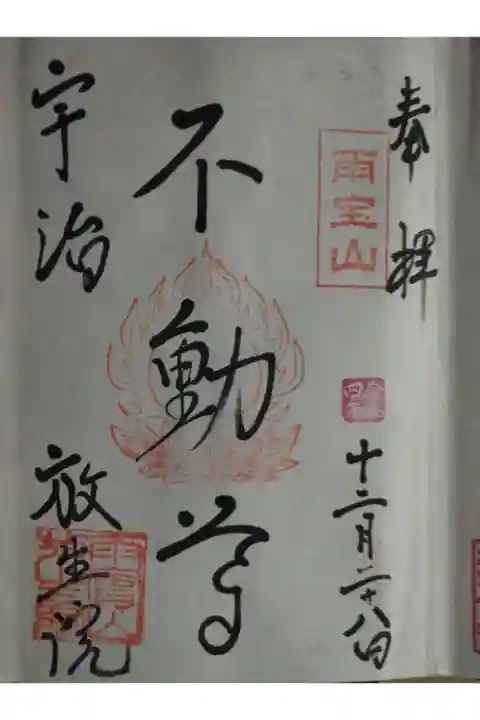 奉拝
雨宝山
十二月二十八日
不動尊
宇治
放生院